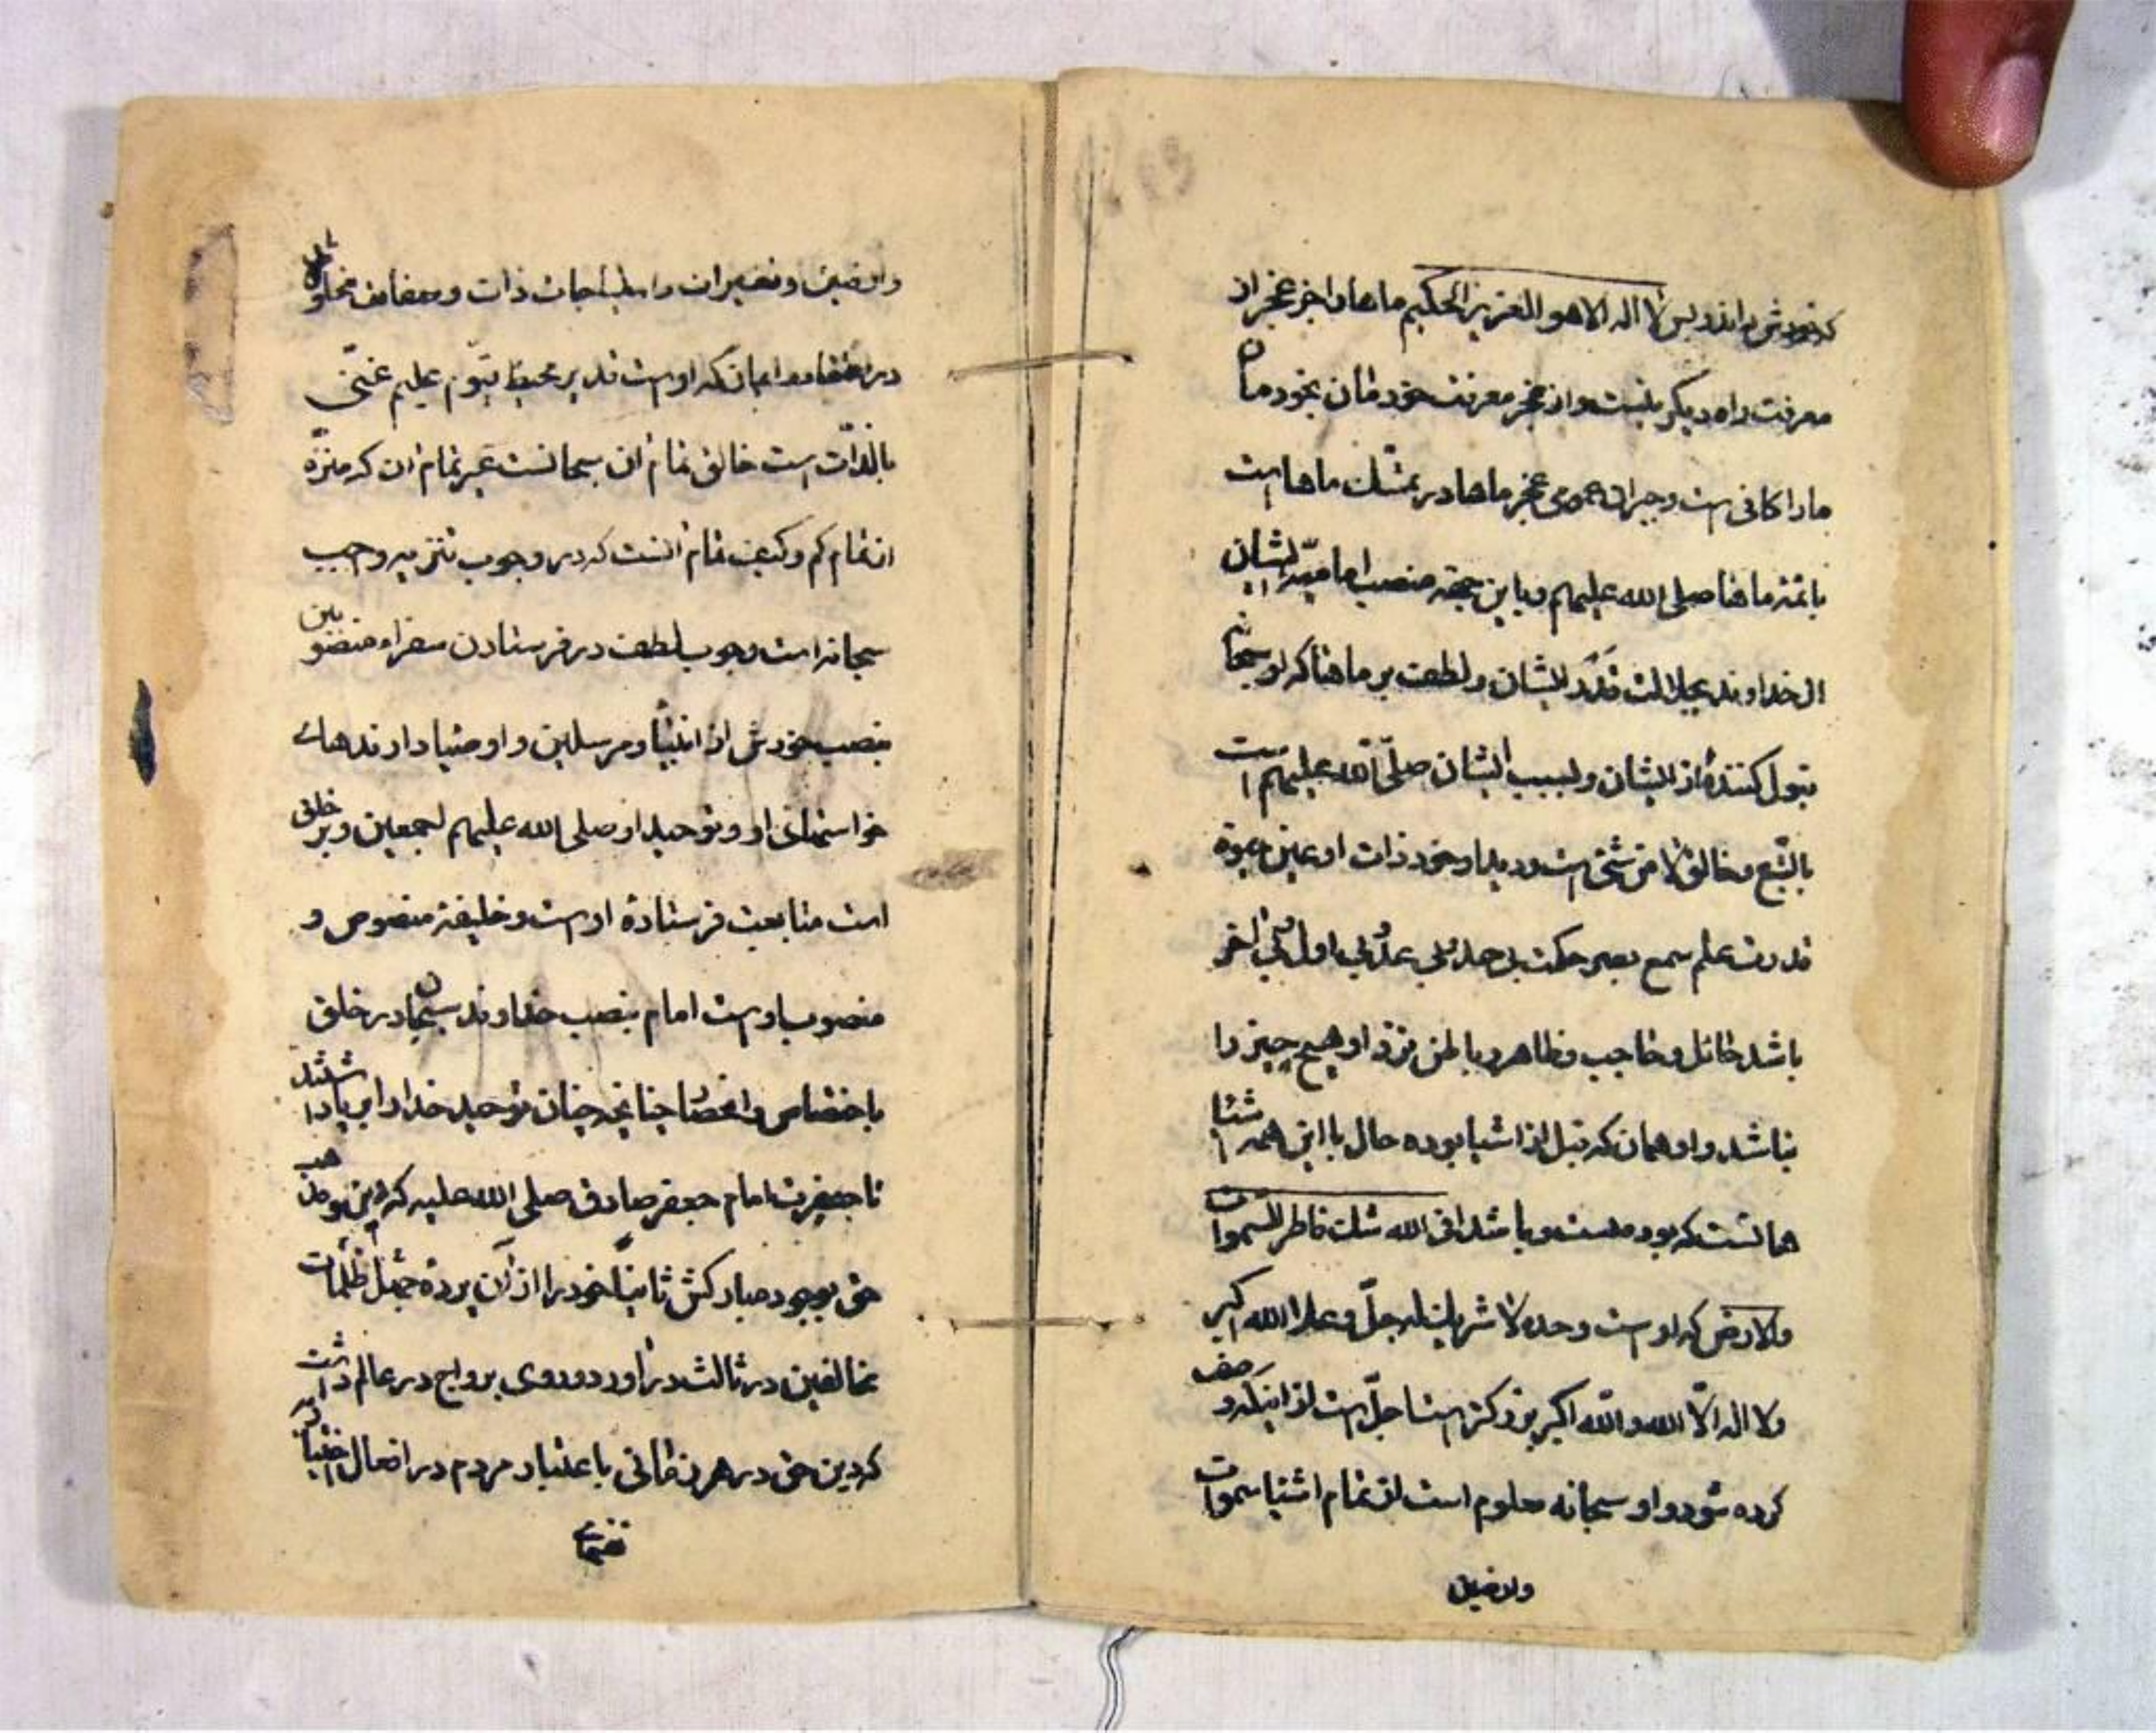 که خودش داند و بس لا اله الا هو العزیز الحکیم ماها را جز عجز از
معرفت راه دیگر نیست و از عجز معرفت خودمان بخودمان
مارا کافی است و جبران عموم عجز ماها در تمسّک ماها است
بائمه ماها صلی الله علیهم و باین جهت منصب امامیّه ایشان
از خداوند بجلالت قَدَرِ ایشان و لطف بر ماها که او سبحانه
قبول کننده از ایشان و بسبب ایشان صلّی الله علیهم است
بالتّبع و خالق لا من شئ است و پدید آورد خود ذات او عین حیوة
قدرت علم سمع بصر حکمت بی حد بی عدّ بی اول بی اخر
باشد حائل و حاجب و ظاهر و باطن نزد او هیچ چیز را
نباشد و او همان که قبل از اشیا بوده حال با این همه اشیا
همانست که بود و هست و باشد افی الله شک فاطر السموات
والارض که اوست وحده لا شریک له جلّ و علا الله اکبر
ولا اله الّا الله والله اکبر بزرگتر است اجلّ است از اینکه وصف
کرده شود و او سبحانه معلوم است از تمام اشیا سموات
وارضین
وارضین و تغییرات
در اعتقاد و ایمان که اوست قدیر محیط قیّوم علیم غنیّ
بالذّات است خالق تمام ان سبحانست غیر تمام ان که منزّه
از تمام کم و کیف تمام انست که در وجوب تنزیه واجب
سبحانه است وجوب لطف در فرستادن سفراء منصوبین
بنصب خودش از انبیا و مرسلین و اوصیا دارندهای
خواستهای او و توحید او صلی الله علیهم اجمعین و بر خلق
است متابعت فرستاده اوست و خلیفه منصوص و
منصوب اوست امام بنصب خداوند سبحان در خلق
باختصاص و انحصار چنانچه چنان توحید خدا را بر پا داشتند
تا حضرت امام جعفر صادق صلی الله علیه که این مذهب
حق بوجود مبارکش ثانیاً خود را از آن پرده جهل ظلمات
مخالفین در ثالث در اورد و روی برواج در عالم داشت
که دین حق در هر زمانی باعتبار مردم در افعال اختیار